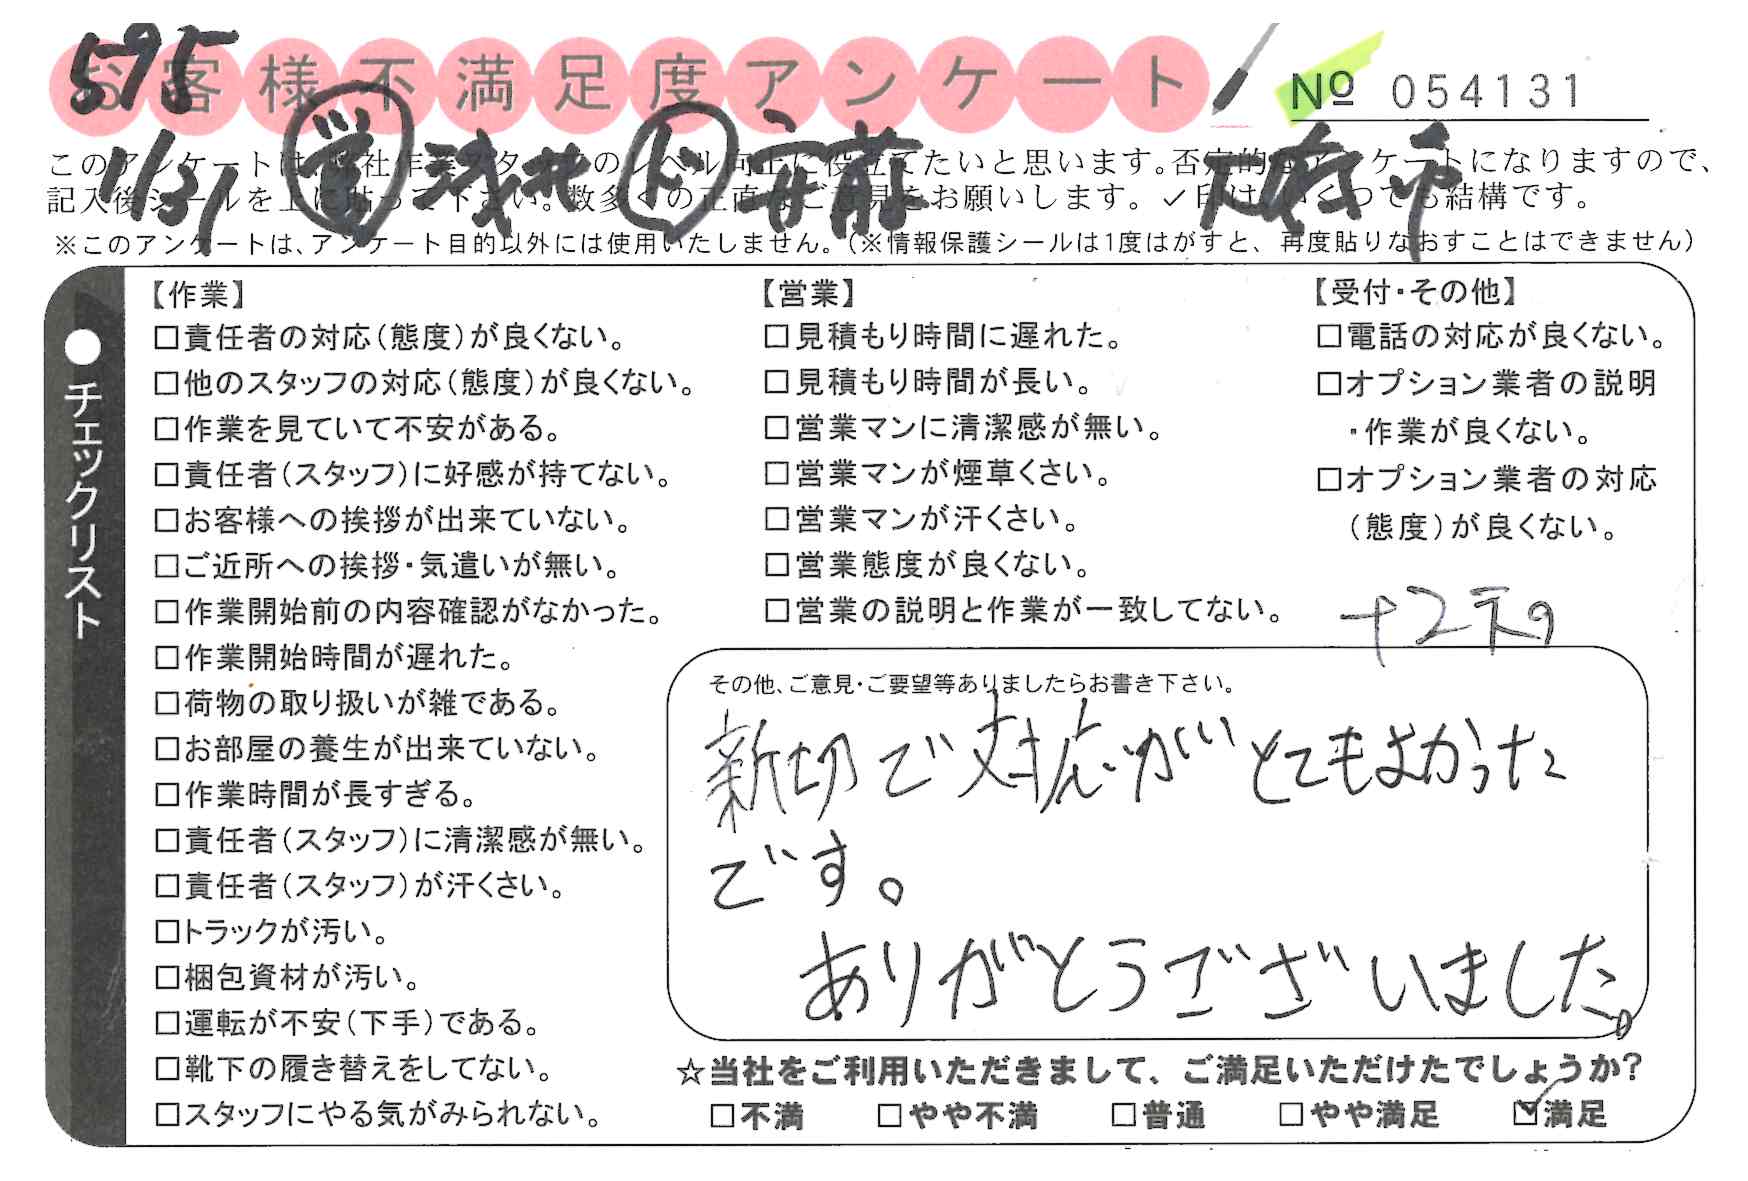 595
お客様不満足度アンケート
№ 054131
1/31 営 浅井 ド 斉藤 大府市
このアンケートは、弊社作業スタッフのレベル向上に役立てたいと思います。否定的なアンケートになりますので、
記入後シールを上に貼って下さい。数多くの正直なご意見をお願いします。✓印はいくつでも結構です。
※このアンケートは、アンケート目的以外には使用いたしません。(※情報保護シールは1度はがすと、再度貼りなおすことはできません)
●チェックリスト
【作業】
□責任者の対応(態度)が良くない。
□他のスタッフの対応(態度)が良くない。
□作業を見ていて不安がある。
□責任者(スタッフ)に好感が持てない。
□お客様への挨拶が出来ていない。
□ご近所への挨拶・気遣いが無い。
□作業開始前の内容確認がなかった。
□作業開始時間が遅れた。
□荷物の取り扱いが雑である。
□お部屋の養生が出来ていない。
□作業時間が長すぎる。
□責任者(スタッフ)に清潔感が無い。
□責任者(スタッフ)が汗くさい。
□トラックが汚い。
□梱包資材が汚い。
□運転が不安(下手)である。
□靴下の履き替えをしてない。
□スタッフにやる気がみられない。
【営業】
□見積もり時間に遅れた。
□見積もり時間が長い。
□営業マンに清潔感が無い。
□営業マンが煙草くさい。
□営業マンが汗くさい。
□営業態度が良くない。
□営業の説明と作業が一致してない。
【受付・その他】
□電話の対応が良くない。
□オプション業者の説明
・作業が良くない。
□オプション業者の対応
(態度)が良くない。
その他、ご意見・ご要望等ありましたらお書き下さい。
新切で対応がとてもよかった
です。
ありがとうございました。
☆当社をご利用いただきまして、ご満足いただけたでしょうか?
□不満 □やや不満 □普通 □やや満足 ☑満足